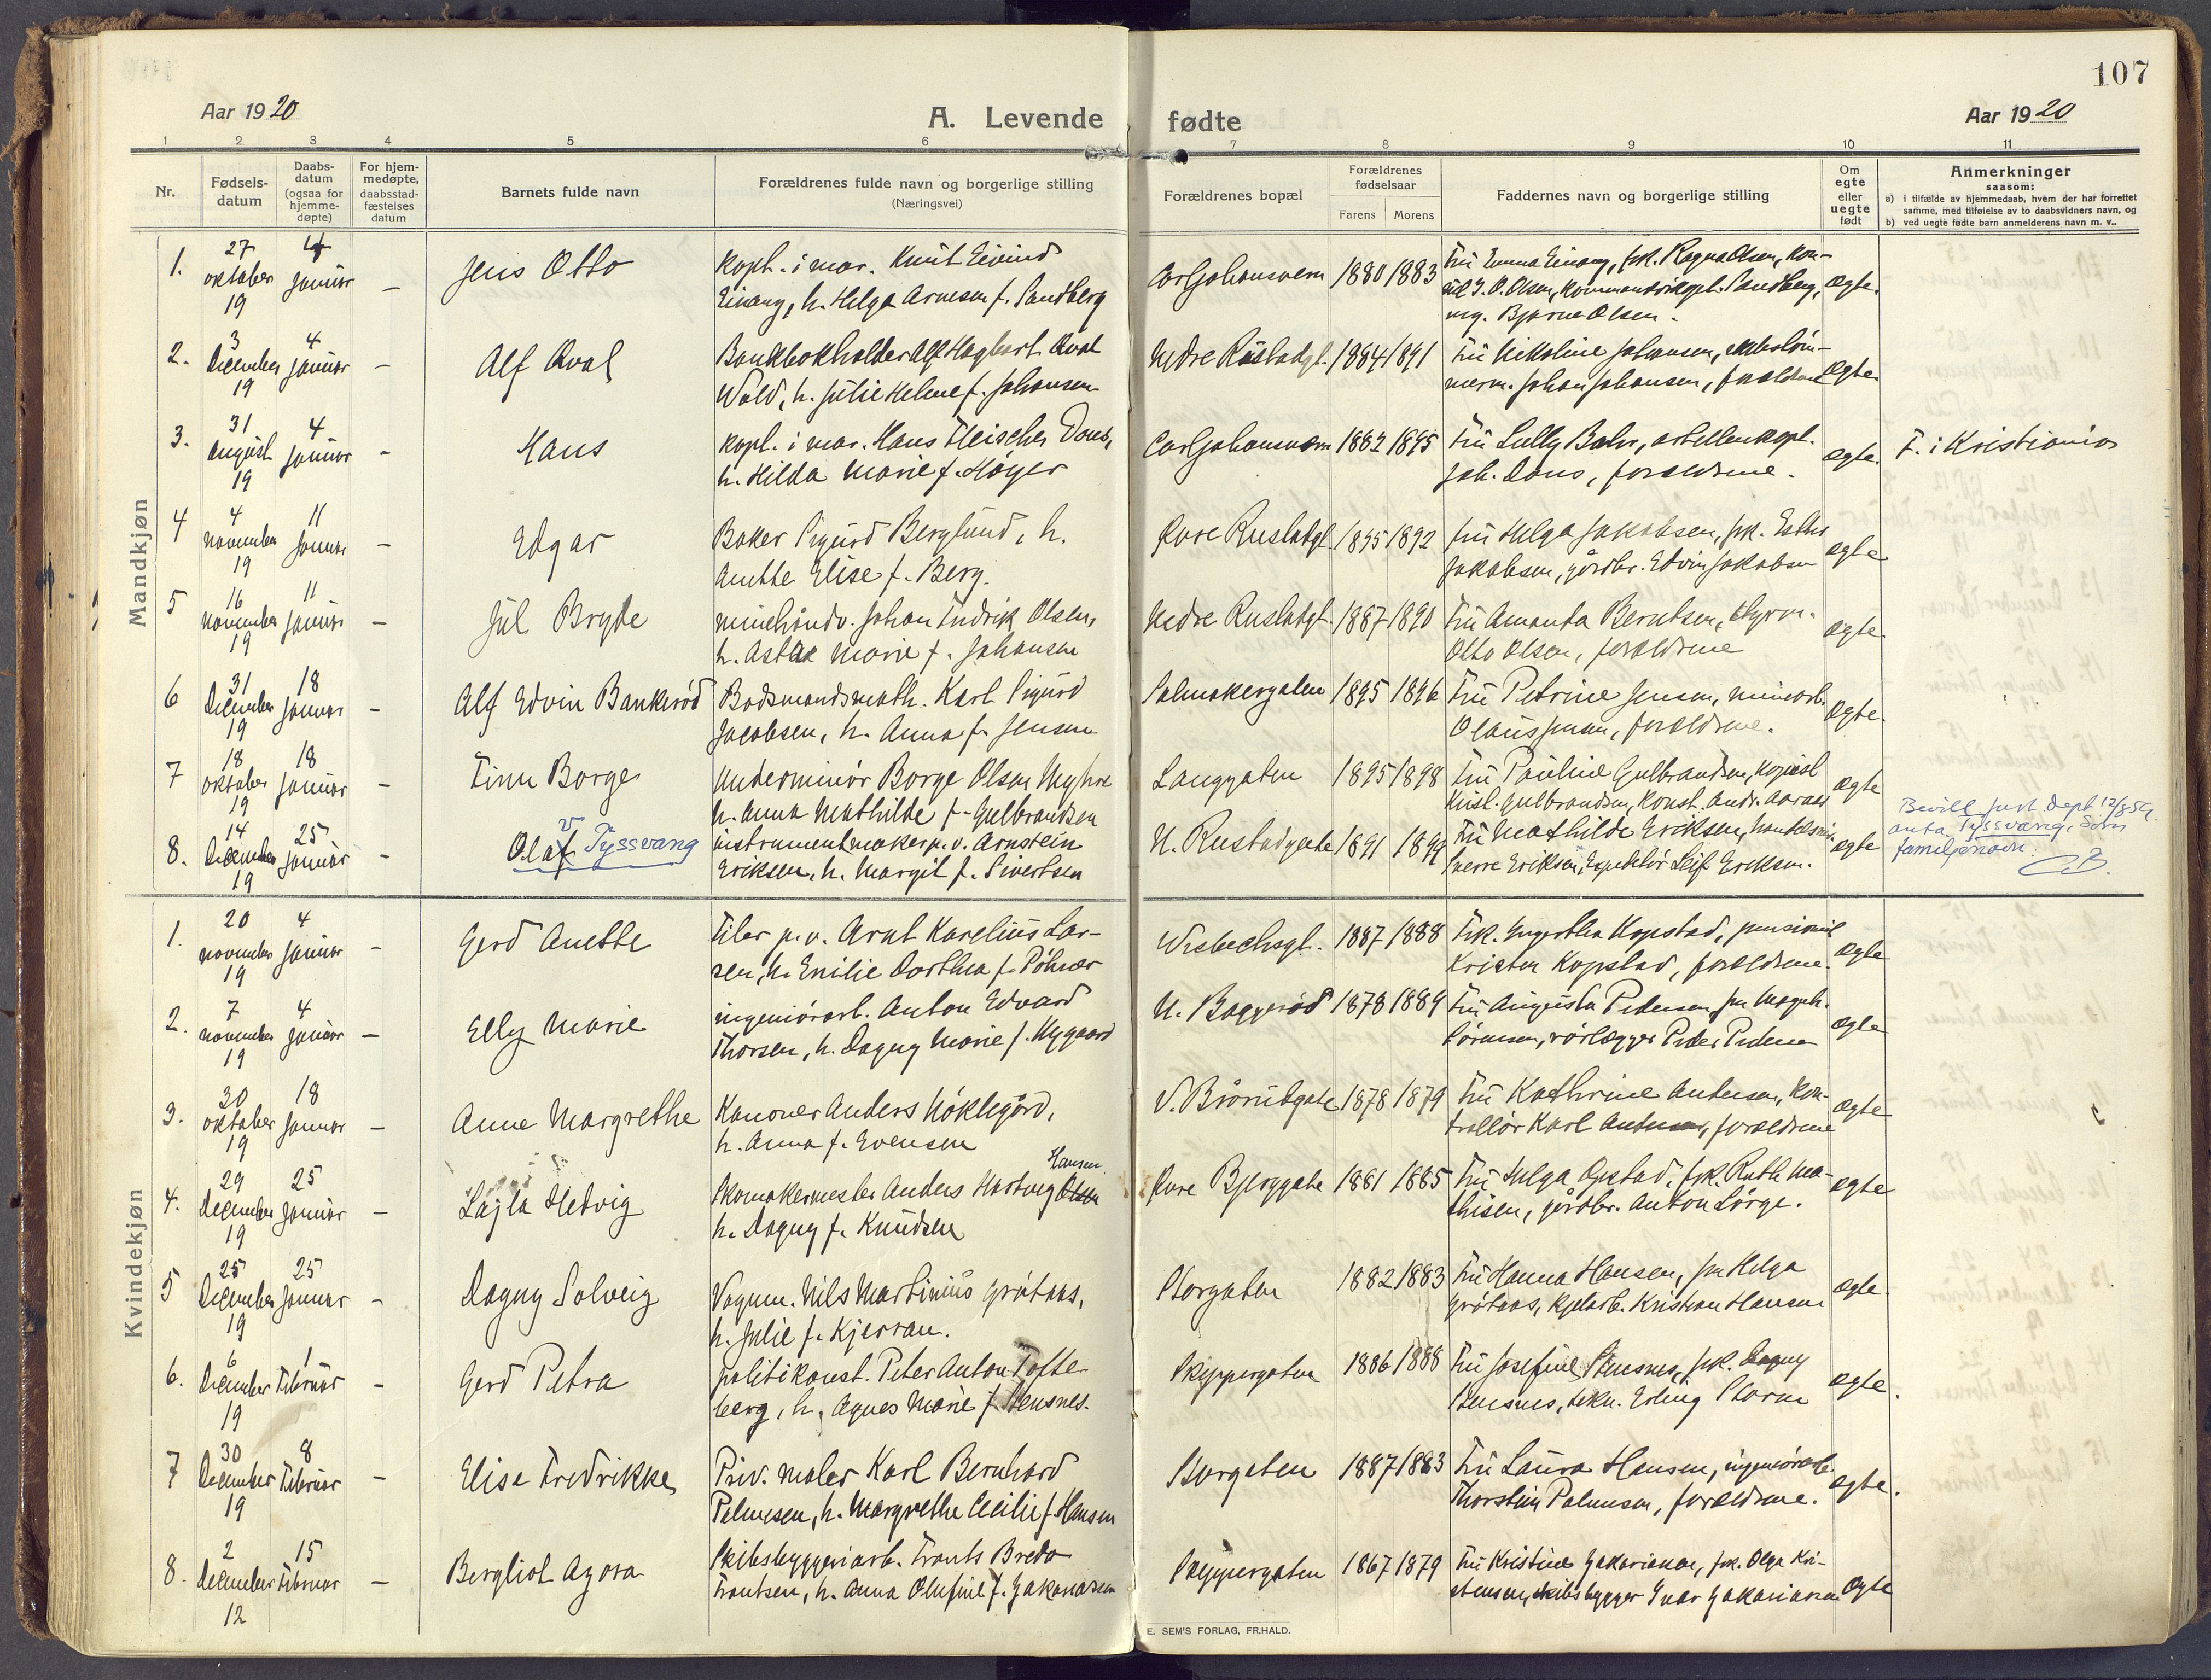 107
Aar 1920
A. Levende fødte
Aar 1920
1 2 3 4 5 6 7 8 9 10 11
Nr.
Fødsels-
datum
Daabs-
datum
(ogsaa for
hjemme-
døpte)
For hjem-
medøpte,
daabsstad-
fæstelses
datum
Barnets fulde navn
Forældrenes fulde navn og borgerlige stilling
(Næringsvei)
Forældrenes bopæl
Forældrenes
fødselsaar
Farens Morens
Faddernes navn og borgerlige stilling
Om
egte
eller
uegte
født
Anmerkninger
saasom:
a) i tilfælde av hjemmedaab, hvem der har forrettet
samme, med tilføielse av to daabsvidners navn, og
b) ved uegte fødte barn anmelderens navn m. v..
Mandkjøn
1. 27 oktober 19 4 januar - Jens Otto
kapt. i mar. Knut Eivind
Einang, h. Helga Arnesen f. Sandberg
Carljohansvern 1880 1883
Fru Emma Einang, frk. Ragna Olsen, kon-
sul J. O. Olsen, kommandörkapt. Sandberg,
ing. Bjarne Olsen.
ægte.
2. 3 december 19 4 januar - Alf Qval
Bankbokholder Alf Hagbart Qval
Wold, h. Julie Helene f. Johansen
Nedre Rustadgt. 1884 1891
Fru Nikoline Johansen,
Johan Johansen, forældrene
ægte.
3. 31 august 19 4 januar - Hans
kapt. i mar. Hans Fleischer Dons,
h. Hilda Marie f. Høyer
Carljohansvern 1882 1895
Fru Lully Bahr, kapt.
Joh. Dons, forældrene.
ægte. F. i Kristiania
4 4 november 19 11 januar - Edgar
Baker Sigurd Berglund, h.
Anette Elise f. Berg.
Øvre Rustadgt 1895 1892
Fru Helga Jakobsen, frk. Esther
Jakobsen, gårdbr. Edvin Jakobsen
ægte
5 16 november 19 11 januar - Jul Bryde
minehåndv. Johan Fredrik Olsen,
h. Asta Marie f. Johansen
Nedre Rustadgt. 1887 1890
Fru Amanda Berntsen, styrm.
Otto Olsen, forældrene
ægte.
6 31 December 19 18 januar - Alf Edvin Bankerød
Bodsmandsmath. Karl Sigurd
Jacobsen, h. Anna f. Jensen
Salmakergaten 1895 1896
Fru Petrine Jensen, minearb.
Olaus Jensen, forældrene.
ægte.
7 18 oktober 19 18 januar - Finn Borge
Underminör Borge Olsen Myhre
h. Anna Mathilde f. Gulbrandsen
Langgaten 1895 1898
Fru Pauline Gulbrandsen, kopist
Krist. Gulbrandsen, konst. Andr. Aaraas
ægte
8. 14 December 19 25 januar - Olaf v Tyssvang
instrumentmaker p. v. Arnstein
Eriksen, h. Margit f. Sivertsen
N. Rustadgate 1891 1899
Fru Mathilde Eriksen,
Sverre Eriksen, Expeditör Leif Eriksen.
ægte
Bevill. Just. dept 12/8 59.
anta Tyssvang som
familienavn.
CB.
Kvindekjøn
1. 20 november 19 4 januar - Gerd Anette
Filer p. v. Arnt Karelius Lar-
sen, h. Emilie Dorthea f.
Wisbechsgt. 1887 1888
Frk. Ingertha Kopstad, pensionist
Krister Kopstad, forældrene.
ægte
2. 7 november 19 4 januar - Elly Marie
ingeniörarb. Anton Edvard
Thorsen, h. Dagny Marie f. Nygaard
N. Baggerød 1878 1889
Fru Augusta Pedersen, fru Magnh.
Sørensen, rörlægger Peder Pedersen
ægte
3. 30 oktober 19 18 januar - Anne Margrethe
Kanoner Anders Nöklegård,
h. Anna f. Evensen
V. Brårudgate 1878 1879
Fru Kathrine Andersen, kon-
trollör Karl Andersen, forældrene
ægte
4. 29 December 19 25 januar - Lajla Hedvig
Skomakermester Anders Hartvig Olsen Hansen
h. Dagny f. Knudsen
Øvre Bjerggate 1881 1885
Fru Helga Opstad, frk. Ruth Ma-
thisen, gårdbr. Anton Lörge.
ægte
5 25 December 19 25 januar - Dagny Solveig
Vognm. Nils Martinius Gråtaas,
h. Julie f. Kjerran.
Storgaten 1882 1883
Fru Hanna Hansen, fru Helga
Gråtaas, kjelarb. Kristian Hansen
ægte
6. 6 December 19 1 Februar - Gerd Petra
politikonst. Peter Anton Tofte-
berg, h. Agnes Marie f. Stensnes.
Skippergaten 1886 1888
Fru Josefine Stensnes, frk. Dagny
Stensnes, tekn. Erling Storm
ægte.
7 30 December 19 8 Februar - Elise Fredrikke
Priv. maler Karl Bernhard
Palmesen, h. Margrethe Cecilie f. Hansen
Storgaten 1887 1883
Fru Laura Hansen, ingeniörarb.
Thorstein Palmesen, forældrene.
ægte.
8. 2 december 12 15 Februar - Bergliot Agora
Skibsbyggeriarb. Frants Bredo
Frantsen, h. Anna Olufine f. Zakariasen
Skippergaten 1867 1879
Fru Kristine Zakariasen, frk. Olga Kri-
stensen, skibsbygger Ivar Zakariasen
ægte
E. SEM'S FORLAG, FR.HALD.